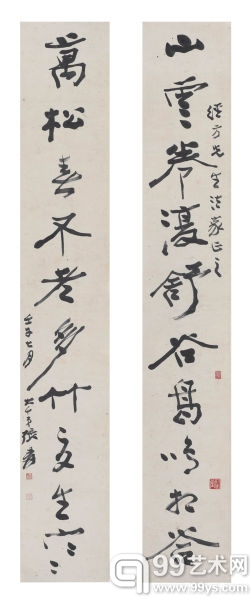 山雲卷復舒谷鳥鳴相答
經方先生法家正之
萬松春不老多竹夏生寒
壬子七月 大千弟張爰
99艺术网
99YS.COM